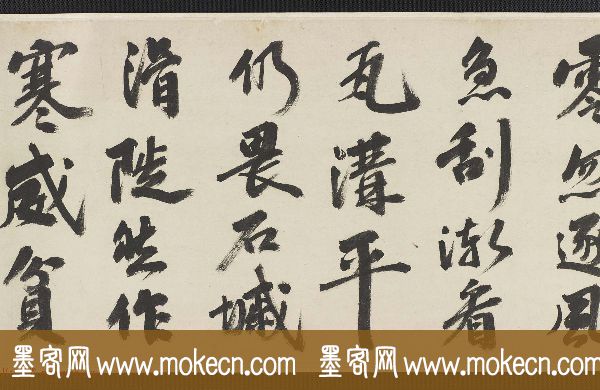 零忽逐風
急刮漸看
瓦溝平
仍畏石墄
滑陡然作
寒威貧
墨客网 www.mokecn.com 墨客网 www.mokecn.com